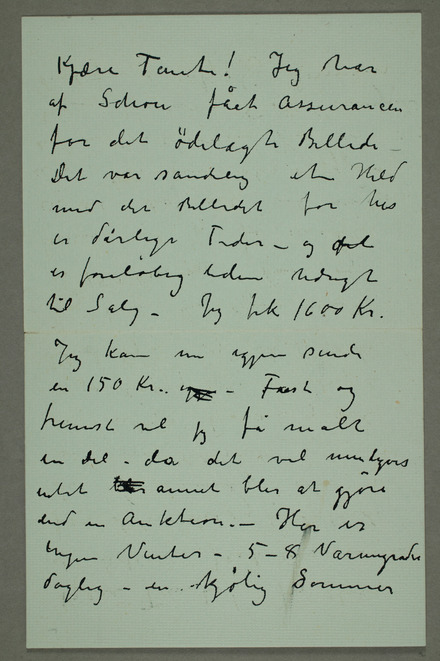 Kjære Tante! Jeg har
af Schou fået Assurancen
for det ödelagte Billede –
Det var sandelig et Held
med det Billedet for her
er dårlige Tider – og
er foreløbig uden Udsigt
til Salg – Jeg fik 1600 Kr.
Jeg kan nu igjen sende
en 150 Kr. – Først og
fremst vil jeg få malt
en Del – da det vel
intet annet blir at gjöre
end en Auktion. – Her er
ingen Vinter – 5–8 Varmegrader
daglig – en kjølig Sommer